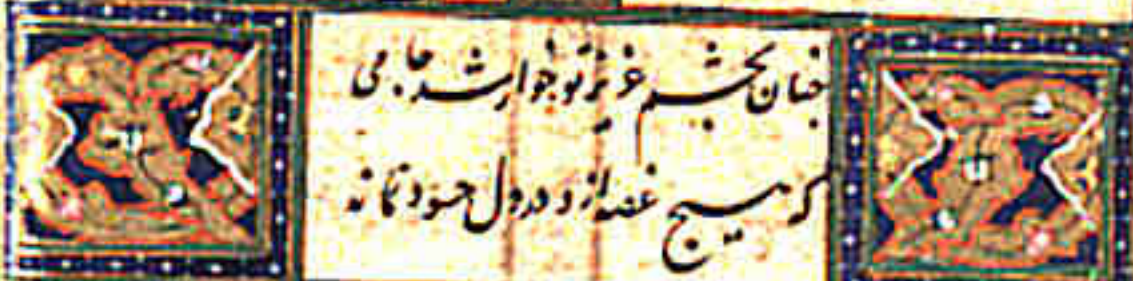 چنان بچشم عزیز تو خوار شد جامی
که هیچ غصه ازو در دل حسود نماند